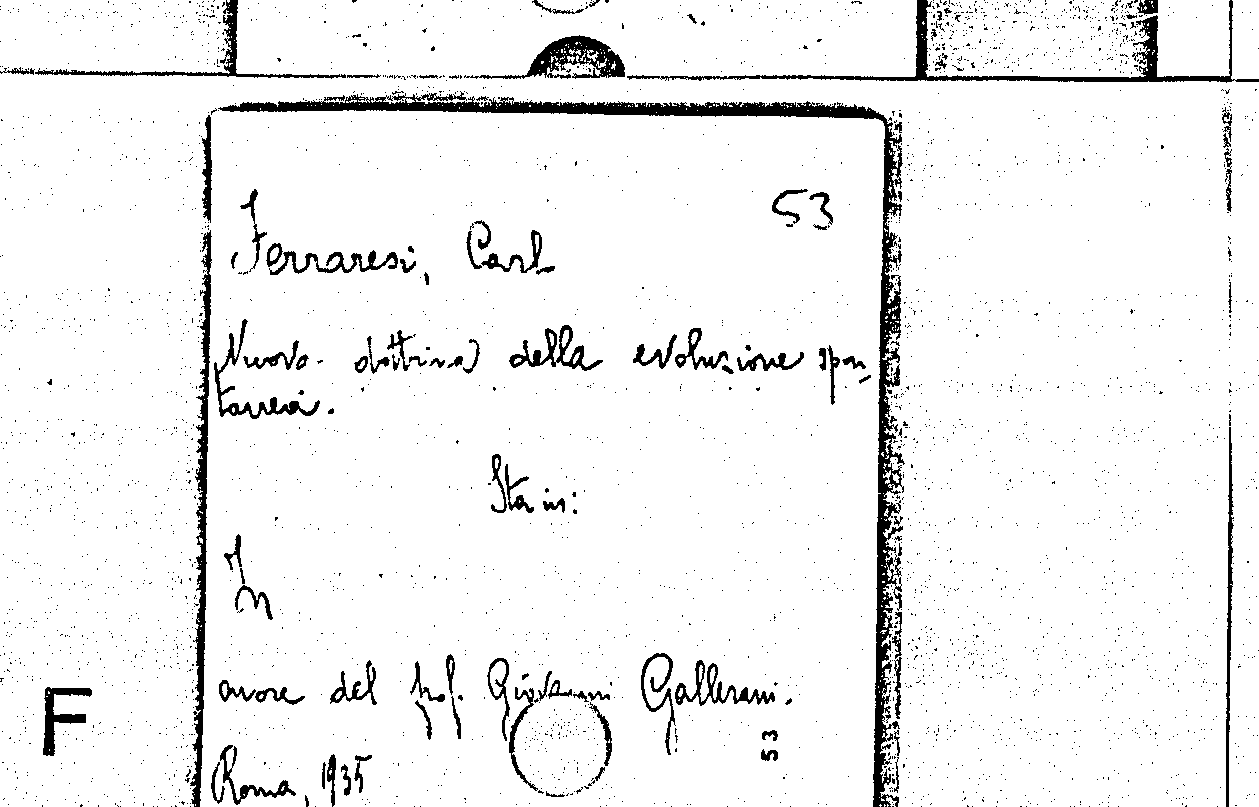 53
Ferraresi, Carl
Nuova dottrina della evoluzione spon-
tanea.
Sta in:
In
onore del prof. Giovanni Gallerani.
53
F
Roma, 1935